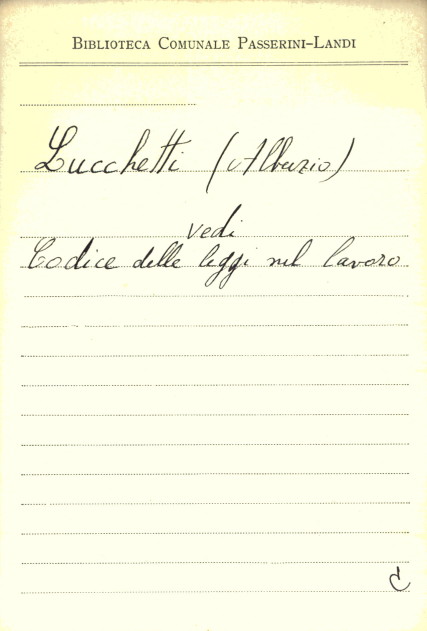 BIBLIOTECA COMUNALE PASSERINI-LANDI
Lucchetti (Albuzio)
vedi
Codice delle leggi nel lavoro
C